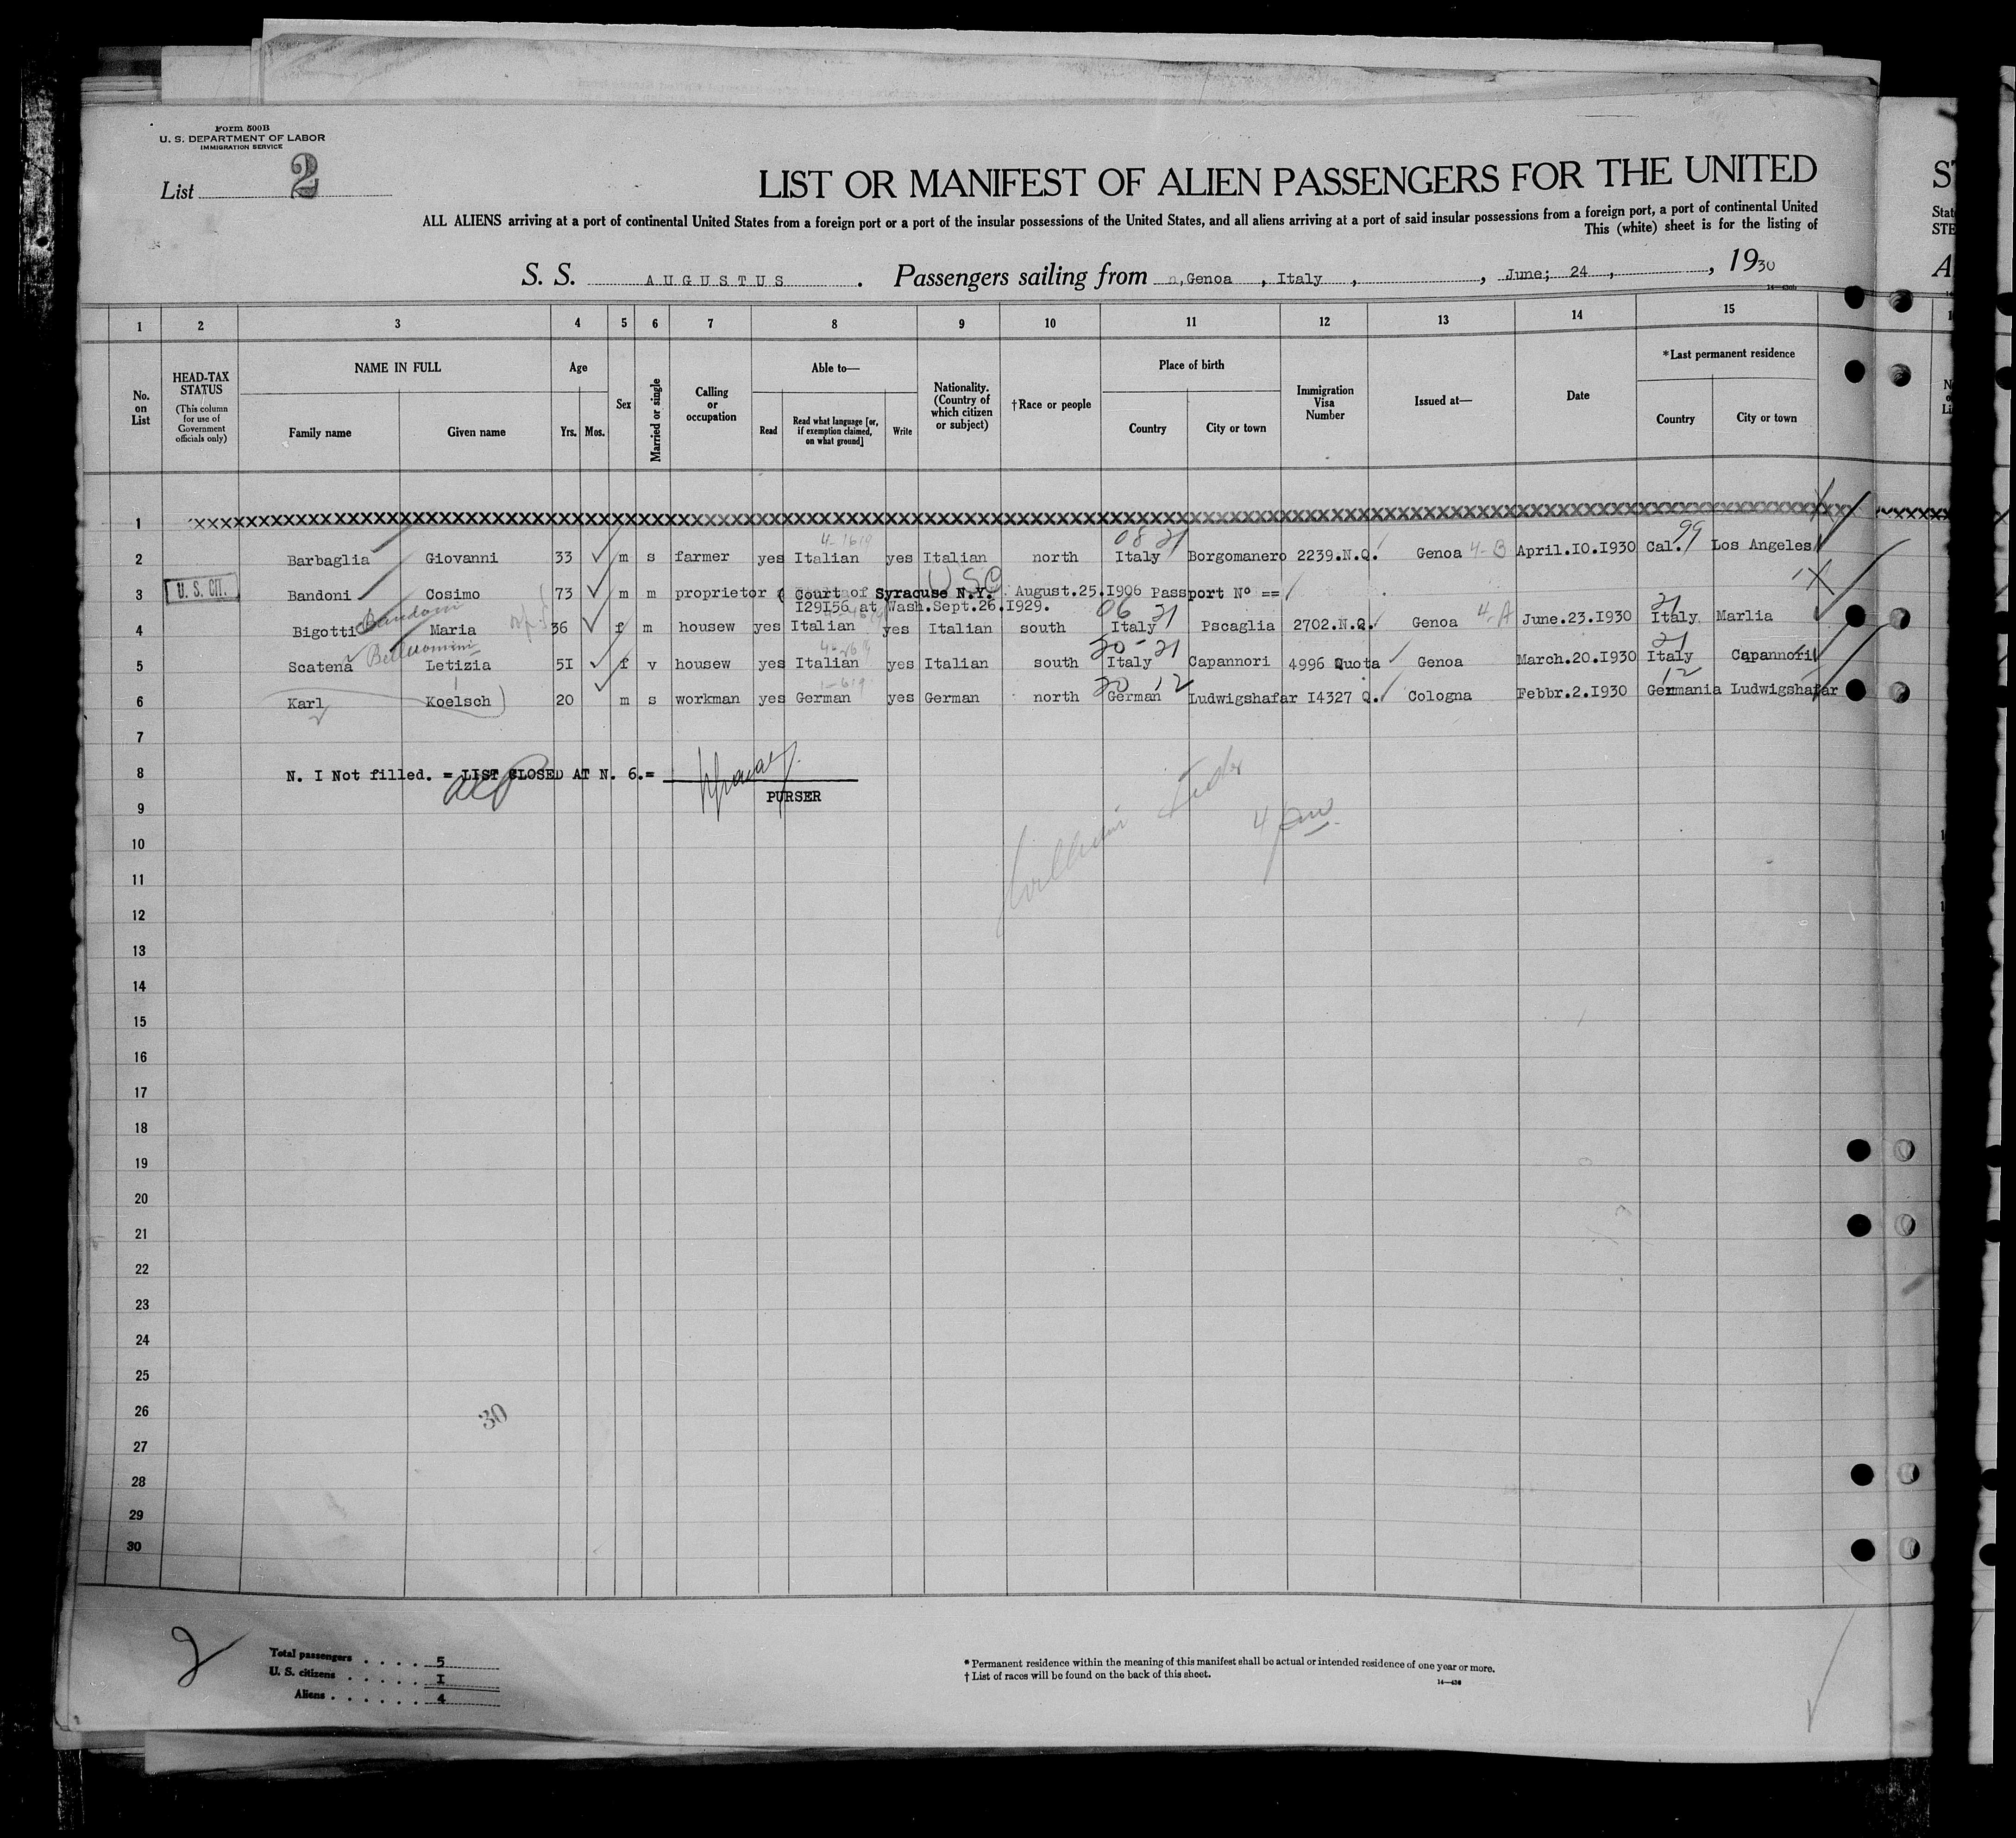 Form 500B
U. S. DEPARTMENT OF LABOR
IMMIGRATION SERVICE
List 2
LIST OR MANIFEST OF ALIEN PASSENGERS FOR THE UNITED
ALL ALIENS arriving at a port of continental United States from a foreign port or a port of the insular possessions of the United States, and all aliens arriving at a port of said insular possessions from a foreign port, a port of continental United
This (white) sheet is for the listing of
S. S. AUGUSTUS. Passengers sailing from n, Genoa , Italy , , June; 24 , , 1930
1 2 3 4 5 6 7 8 9 10 11 12 13 14 15
No. on List
HEAD-TAX STATUS
(This column for use of Government officials only)
NAME IN FULL
Family name Given name
Age
Yrs. Mos.
Sex
Married or single
Calling or occupation
Able to—
Read
Read what language [or, if exemption claimed, on what ground]
Write
Nationality. (Country of which citizen or subject)
†Race or people
Place of birth
Country City or town
Immigration Visa Number
Issued at—
Date
*Last permanent residence
Country City or town
1 XXXXXXXXXXXXXXXXXXXXXXXXXXXXXXXX
08 21 99
2 Barbaglia Giovanni 33 m s farmer yes Italian yes Italian north Italy Borgomanero 2239.N.Q. Genoa 4-B April.I0.I930 Cal. Los Angeles
U S C
3 U. S. CIT. Bandoni Cosimo 73 m m proprietor ( Court of Syracuse N.Y. August.25.I906 Passport Nº ==
I29I56 at Wash.Sept.26.I929.
Bandoni 06 21 21
4 Bigotti Maria 36 f m housew yes Italian yes Italian south Italy Pscaglia 2702.N.Q. Genoa 4-A June.23.I930 Italy Marlia
Belluomini 20-21 21
5 Scatena Letizia 5I f v housew yes Italian yes Italian south Italy Capannori 4996 Quota Genoa March.20.I930 Italy Capannori
20 12 12
6 Karl Koelsch 20 m s workman yes German yes German north German Ludwigshafar I4327 Q. Cologna Febbr.2.I930 Germania Ludwigshafar
7
8 N. I Not filled. = LIST CLOSED AT N. 6.=
PURSER
9
4 pm
10
11
12
13
14
15
16
17
18
19
20
21
22
23
24
25
26
30
27
28
29
30
2
Total passengers . . . . 5
U. S. citizens . . . . . I
Aliens . . . . . . 4
* Permanent residence within the meaning of this manifest shall be actual or intended residence of one year or more.
† List of races will be found on the back of this sheet.